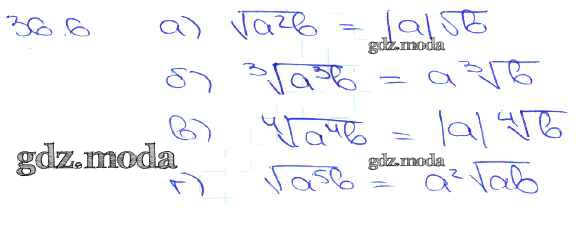 36.6 а) √a²b = |a|√b
gdz.moda
б) ³√a³b = a ³√b
в) ⁴√a⁴b = |a| ⁴√b
gdz.moda
gdz.moda
г) √a⁵b = a²√ab